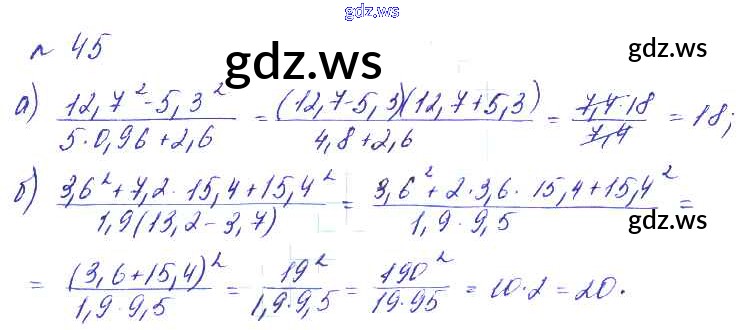 gdz.ws
№ 45
gdz.ws
gdz.ws
а) (12,7² - 5,3²)/(5·0,96 + 2,6) = ((12,7 - 5,3)(12,7 + 5,3))/(4,8 + 2,6) = (7,4·18)/7,4 = 18;
б) (3,6² + 7,2·15,4 + 15,4²)/(1,9(13,2 - 3,7)) = (3,6² + 2·3,6·15,4 + 15,4²)/(1,9·9,5) =
gdz.ws
gdz.ws
= (3,6 + 15,4)²/(1,9·9,5) = 19²/(1,9·9,5) = 190²/(19·95) = 10·2 = 20.
gdz.ws